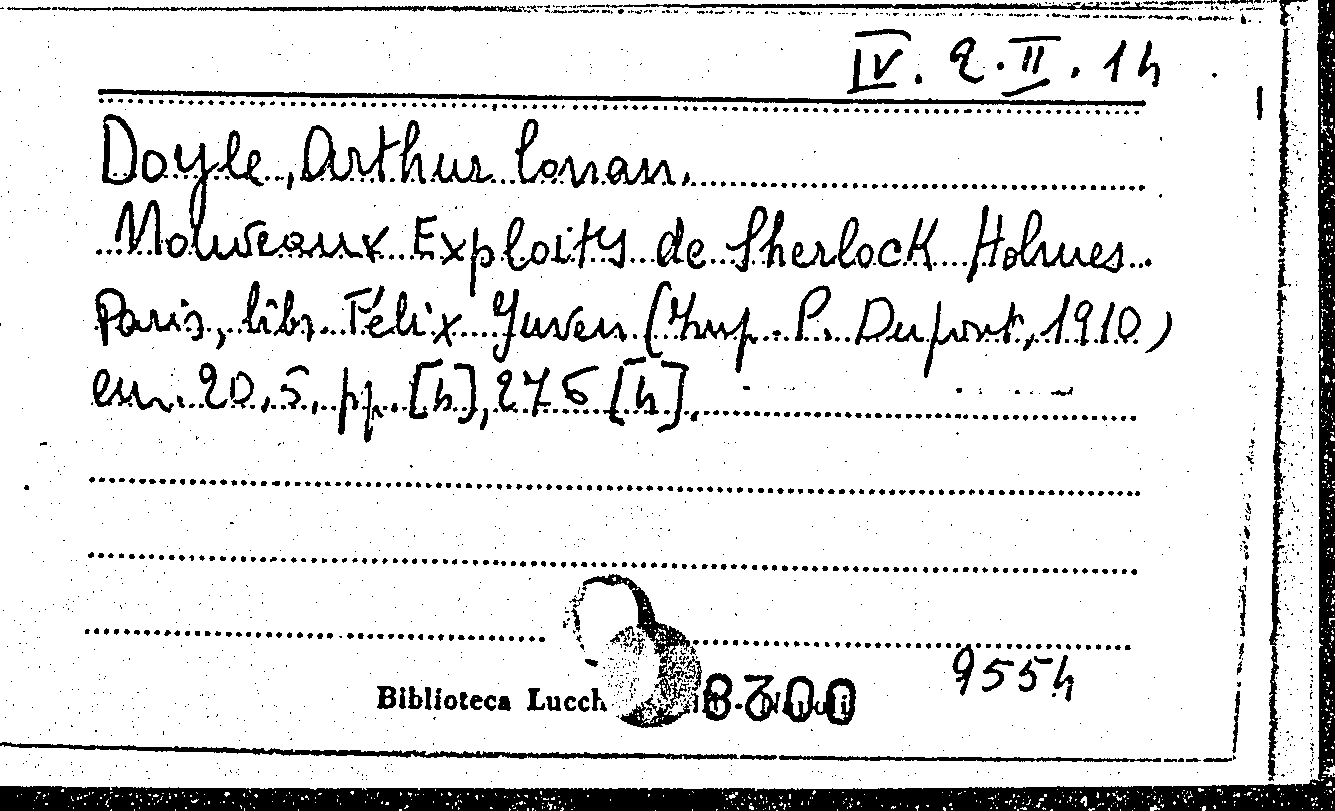 IV. 2. II. 14
Doyle, Arthur Conan.
Nouveaux Exploits de Sherlock Holmes.
Paris, libr. Félix Juven (Imp. P. Dupont, 1910)
cm. 20,5, pp. [4], 275 [4].
9554
Biblioteca Lucch 8300